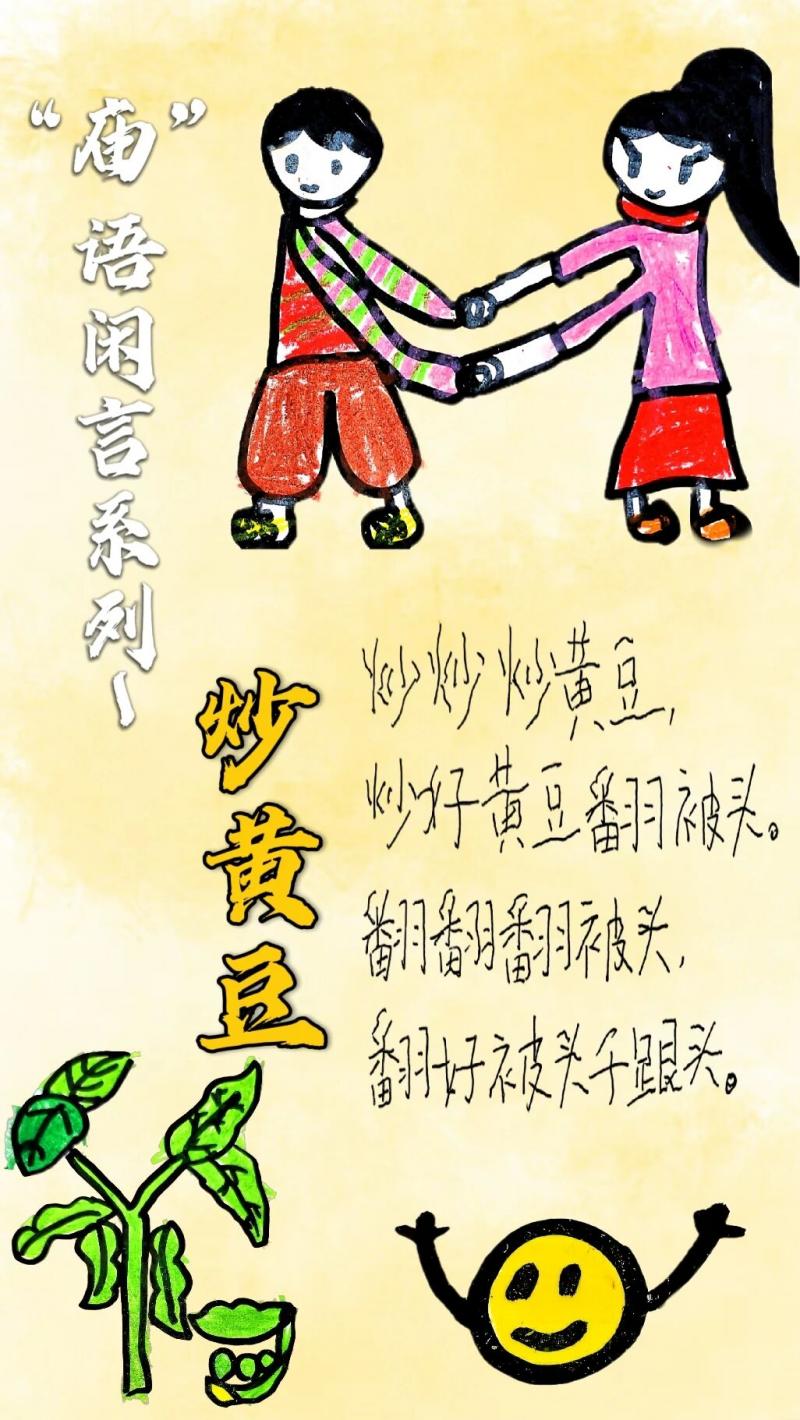 “庙”语闲言系列~
炒黄豆
炒炒炒黄豆，
炒好黄豆翻被头。
翻翻翻被头，
翻好被头千跟头。